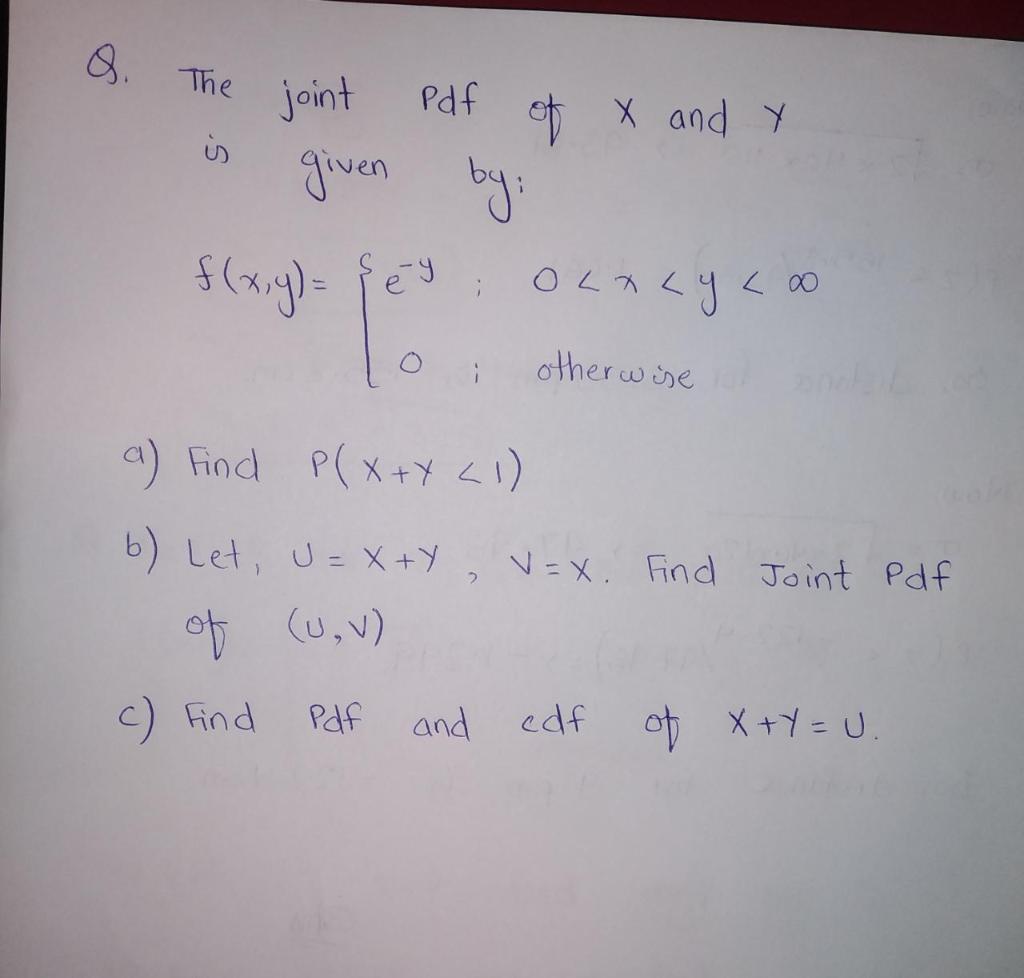 Q. The joint Pdf of X and Y
is given by:
f(x,y)= { e^-y ; 0 < x < y < ∞
0 ; otherwise
a) Find P( X+Y <1)
b) Let, U = X+Y , V=X. Find Joint Pdf
of (U,V)
c) Find Pdf and cdf of X+Y=U.